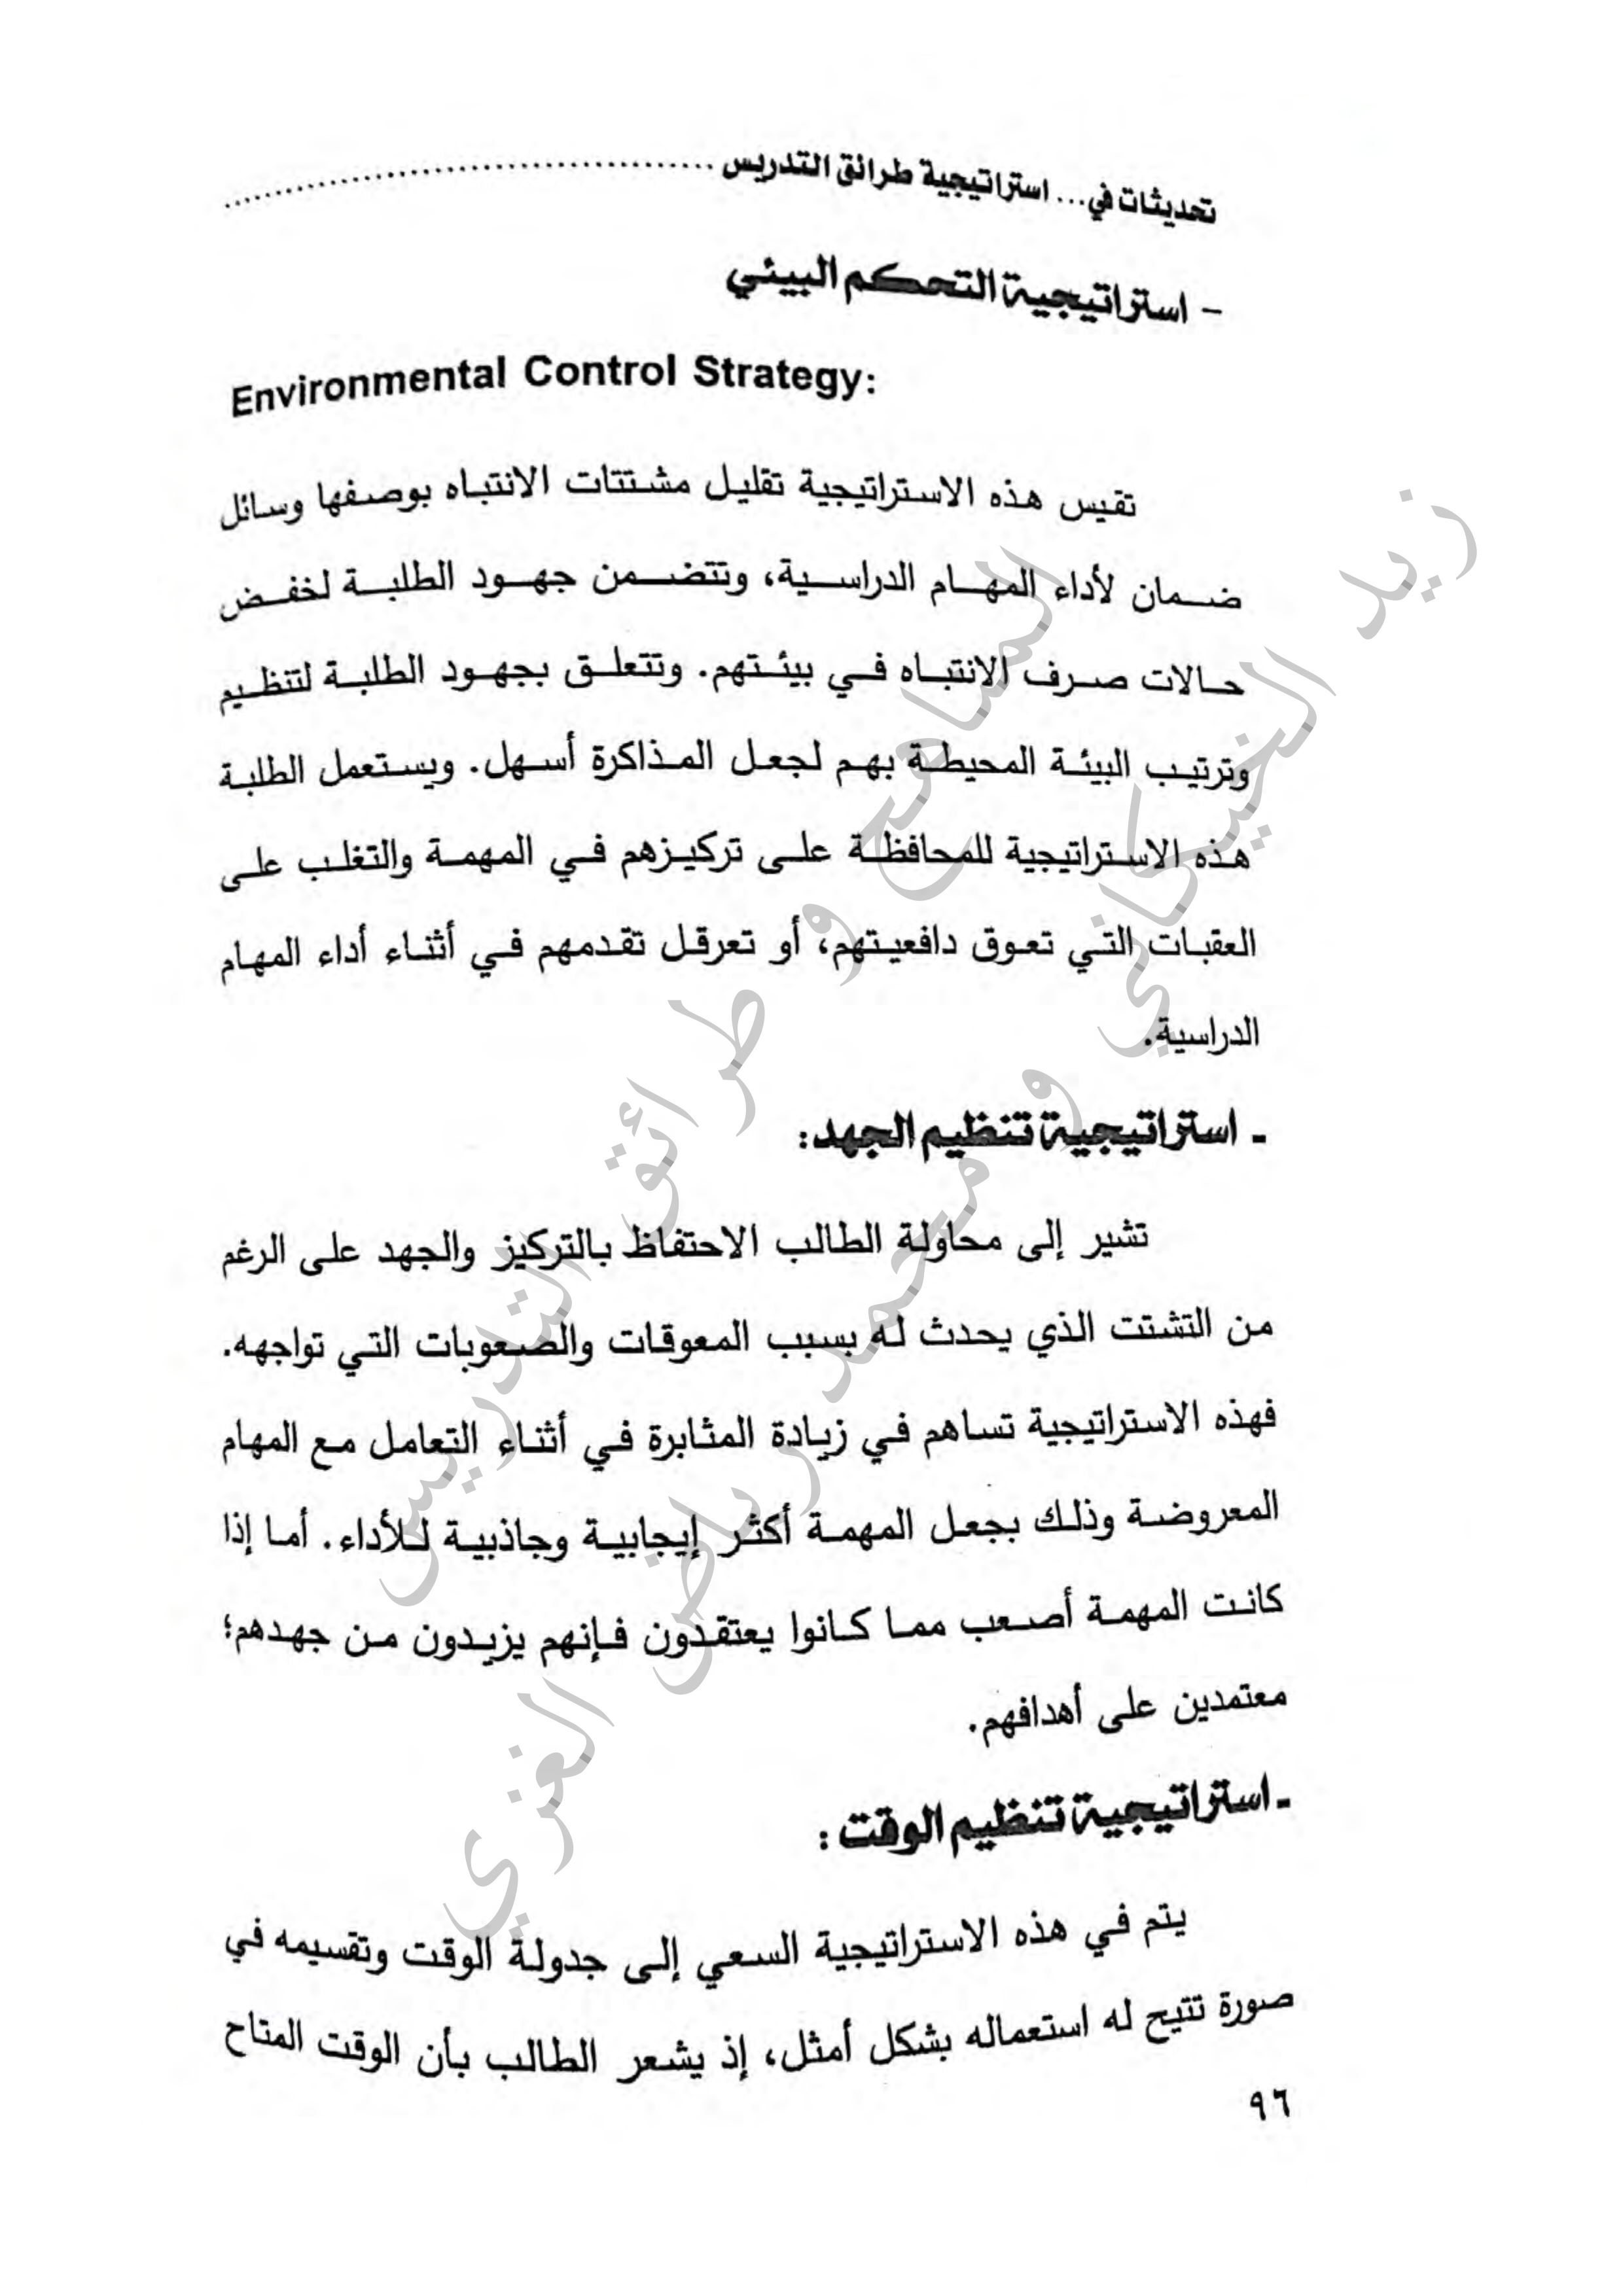 تحديثات في... استراتيجية طرائق التدريس
- استراتيجية التحكم البيئي
Environmental Control Strategy:
تقيس هذه الاستراتيجية تقليل مشتتات الانتباه بوصفها وسائل
ضمان لأداء المهام الدراسية، وتتضمن جهود الطلبة لخفض
حالات صرف الانتباه في بيئتهم. وتتعلق بجهود الطلبة لتنظيم
وترتيب البيئة المحيطة بهم لجعل المذاكرة أسهل. ويستعمل الطلبة
هذه الاستراتيجية للمحافظة على تركيزهم في المهمة والتغلب على
العقبات التي تعوق دافعيتهم، أو تعرقل تقدمهم في أثناء أداء المهام
الدراسية.
- استراتيجية تنظيم الجهد:
تشير إلى محاولة الطالب الاحتفاظ بالتركيز والجهد على الرغم
من التشتت الذي يحدث له بسبب المعوقات والصعوبات التي تواجهه.
فهذه الاستراتيجية تساهم في زيادة المثابرة في أثناء التعامل مع المهام
المعروضة وذلك بجعل المهمة أكثر إيجابية وجاذبية للأداء. أما إذا
كانت المهمة أصعب مما كانوا يعتقدون فإنهم يزيدون من جهدهم؛
معتمدين على أهدافهم.
- استراتيجية تنظيم الوقت :
يتم في هذه الاستراتيجية السعي إلى جدولة الوقت وتقسيمه في
صورة تتيح له استعماله بشكل أمثل، إذ يشعر الطالب بأن الوقت المتاح
٩٦
المناهج و طرائق التدريس
زيد الخيكاني و محمد رياض الغزي